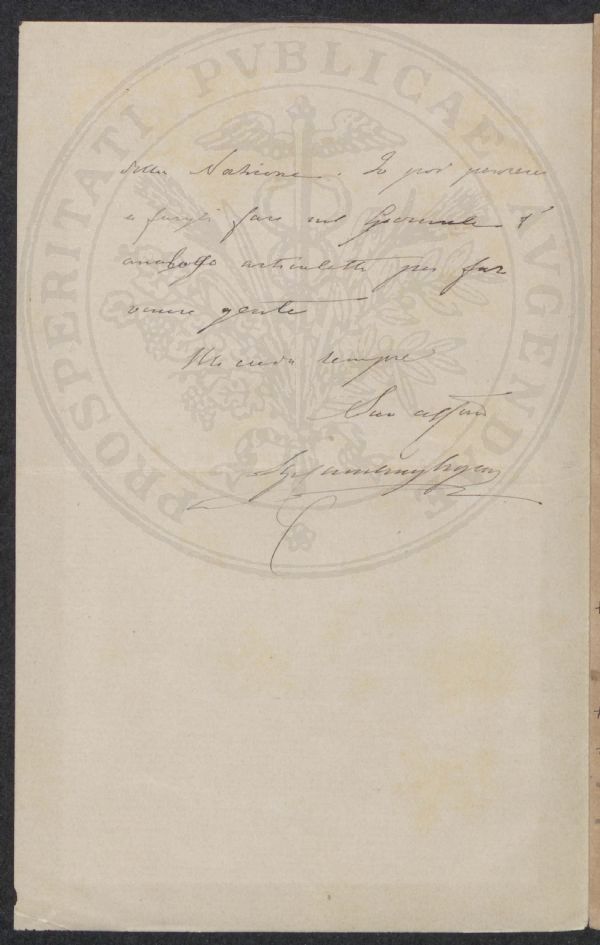 PROSPERITATI PVBLICAE AVGENDAE
della Nazione. Io poi penserei
a fargli fare nel Giornale
analogo articoletto per far
venire gente
Mi creda sempre
Suo affmo